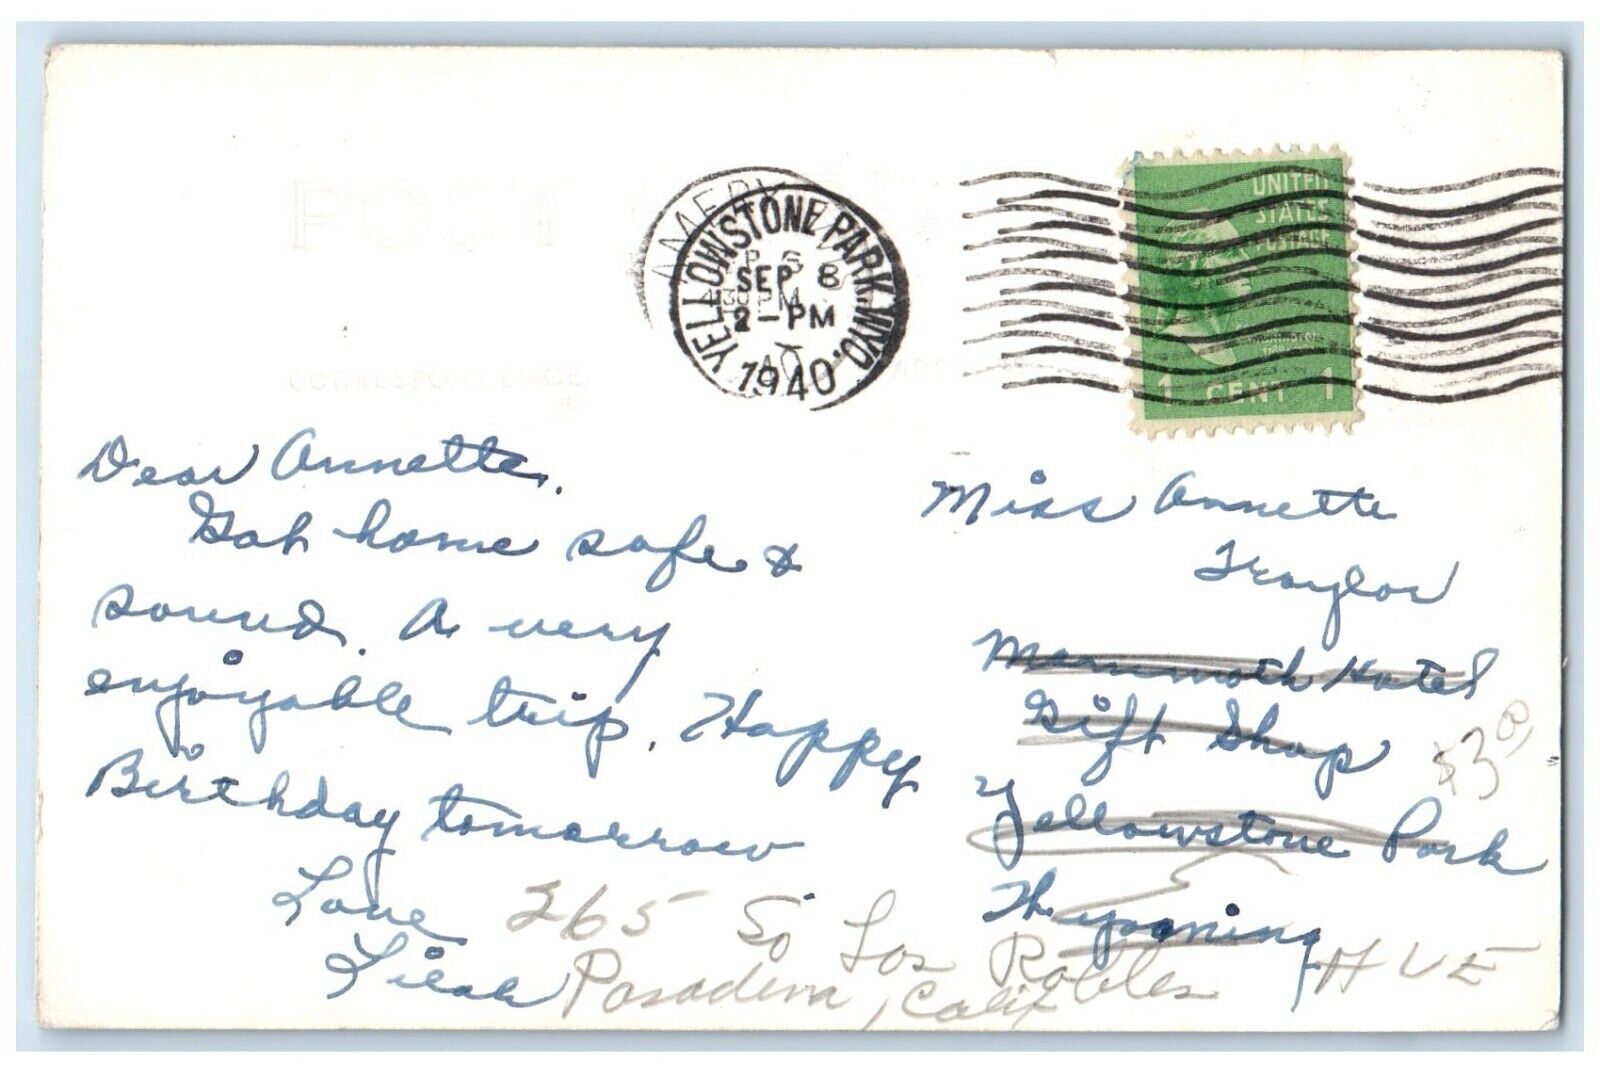 POST
CORRESPONDENCE
AMERY
YELLOWSTONE PARK, WYO.
SEP 8
2 - PM
1940
UNITED
STATES
POSTAGE
1 CENT 1
Dear Annette,
Got home safe &
sound. A very
enjoyable trip. Happy
Birthday tomorrow
Love
Miss Annette
Traylor
Mammoth Hotel
Gift Shop
Yellowstone Park
Wyoming
$3.00
265 So Los Robles AVE
Pasadena, Calif